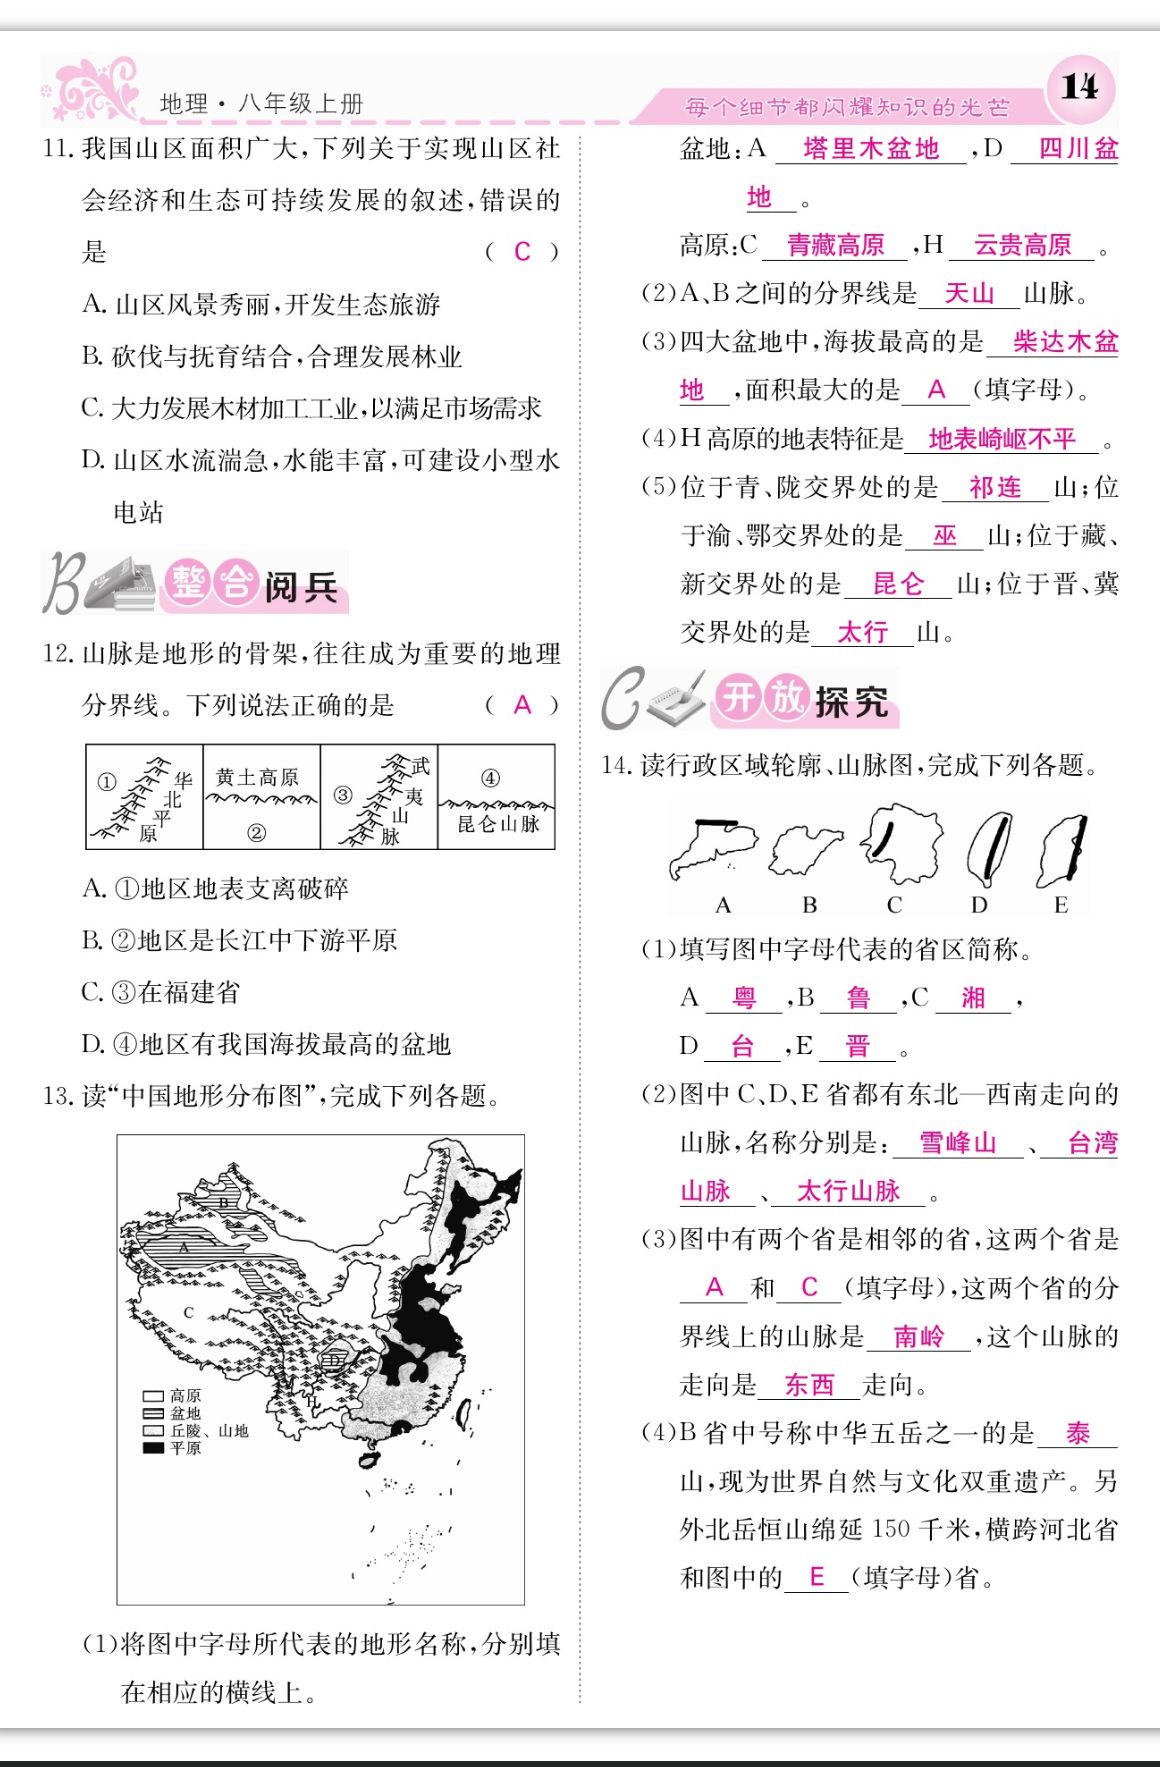 地理·八年级上册
每个细节都闪耀知识的光芒
14
11. 我国山区面积广大,下列关于实现山区社
会经济和生态可持续发展的叙述,错误的
是 ( C )
A. 山区风景秀丽,开发生态旅游
B. 砍伐与抚育结合,合理发展林业
C. 大力发展木材加工工业,以满足市场需求
D. 山区水流湍急,水能丰富,可建设小型水
电站
B 整合阅兵
12. 山脉是地形的骨架,往往成为重要的地理
分界线。下列说法正确的是 ( A )
① 华北平原
黄土高原 ②
③ 武夷山脉
④ 昆仑山脉
A. ①地区地表支离破碎
B. ②地区是长江中下游平原
C. ③在福建省
D. ④地区有我国海拔最高的盆地
13. 读“中国地形分布图”,完成下列各题。
B
A
C
D
H
高原
盆地
丘陵、山地
平原
(1)将图中字母所代表的地形名称,分别填
在相应的横线上。
盆地:A 塔里木盆地 ,D 四川盆
地 。
高原:C 青藏高原 ,H 云贵高原 。
(2)A、B之间的分界线是 天山 山脉。
(3)四大盆地中,海拔最高的是 柴达木盆
地 ,面积最大的是 A (填字母)。
(4)H高原的地表特征是 地表崎岖不平 。
(5)位于青、陇交界处的是 祁连 山;位
于渝、鄂交界处的是 巫 山;位于藏、
新交界处的是 昆仑 山;位于晋、冀
交界处的是 太行 山。
C 开放探究
14. 读行政区域轮廓、山脉图,完成下列各题。
A B C D E
(1)填写图中字母代表的省区简称。
A 粤 ,B 鲁 ,C 湘 ,
D 台 ,E 晋 。
(2)图中C、D、E省都有东北—西南走向的
山脉,名称分别是: 雪峰山 、 台湾
山脉 、 太行山脉 。
(3)图中有两个省是相邻的省,这两个省是
A 和 C (填字母),这两个省的分
界线上的山脉是 南岭 ,这个山脉的
走向是 东西 走向。
(4)B省中号称中华五岳之一的是 泰
山,现为世界自然与文化双重遗产。另
外北岳恒山绵延150千米,横跨河北省
和图中的 E (填字母)省。